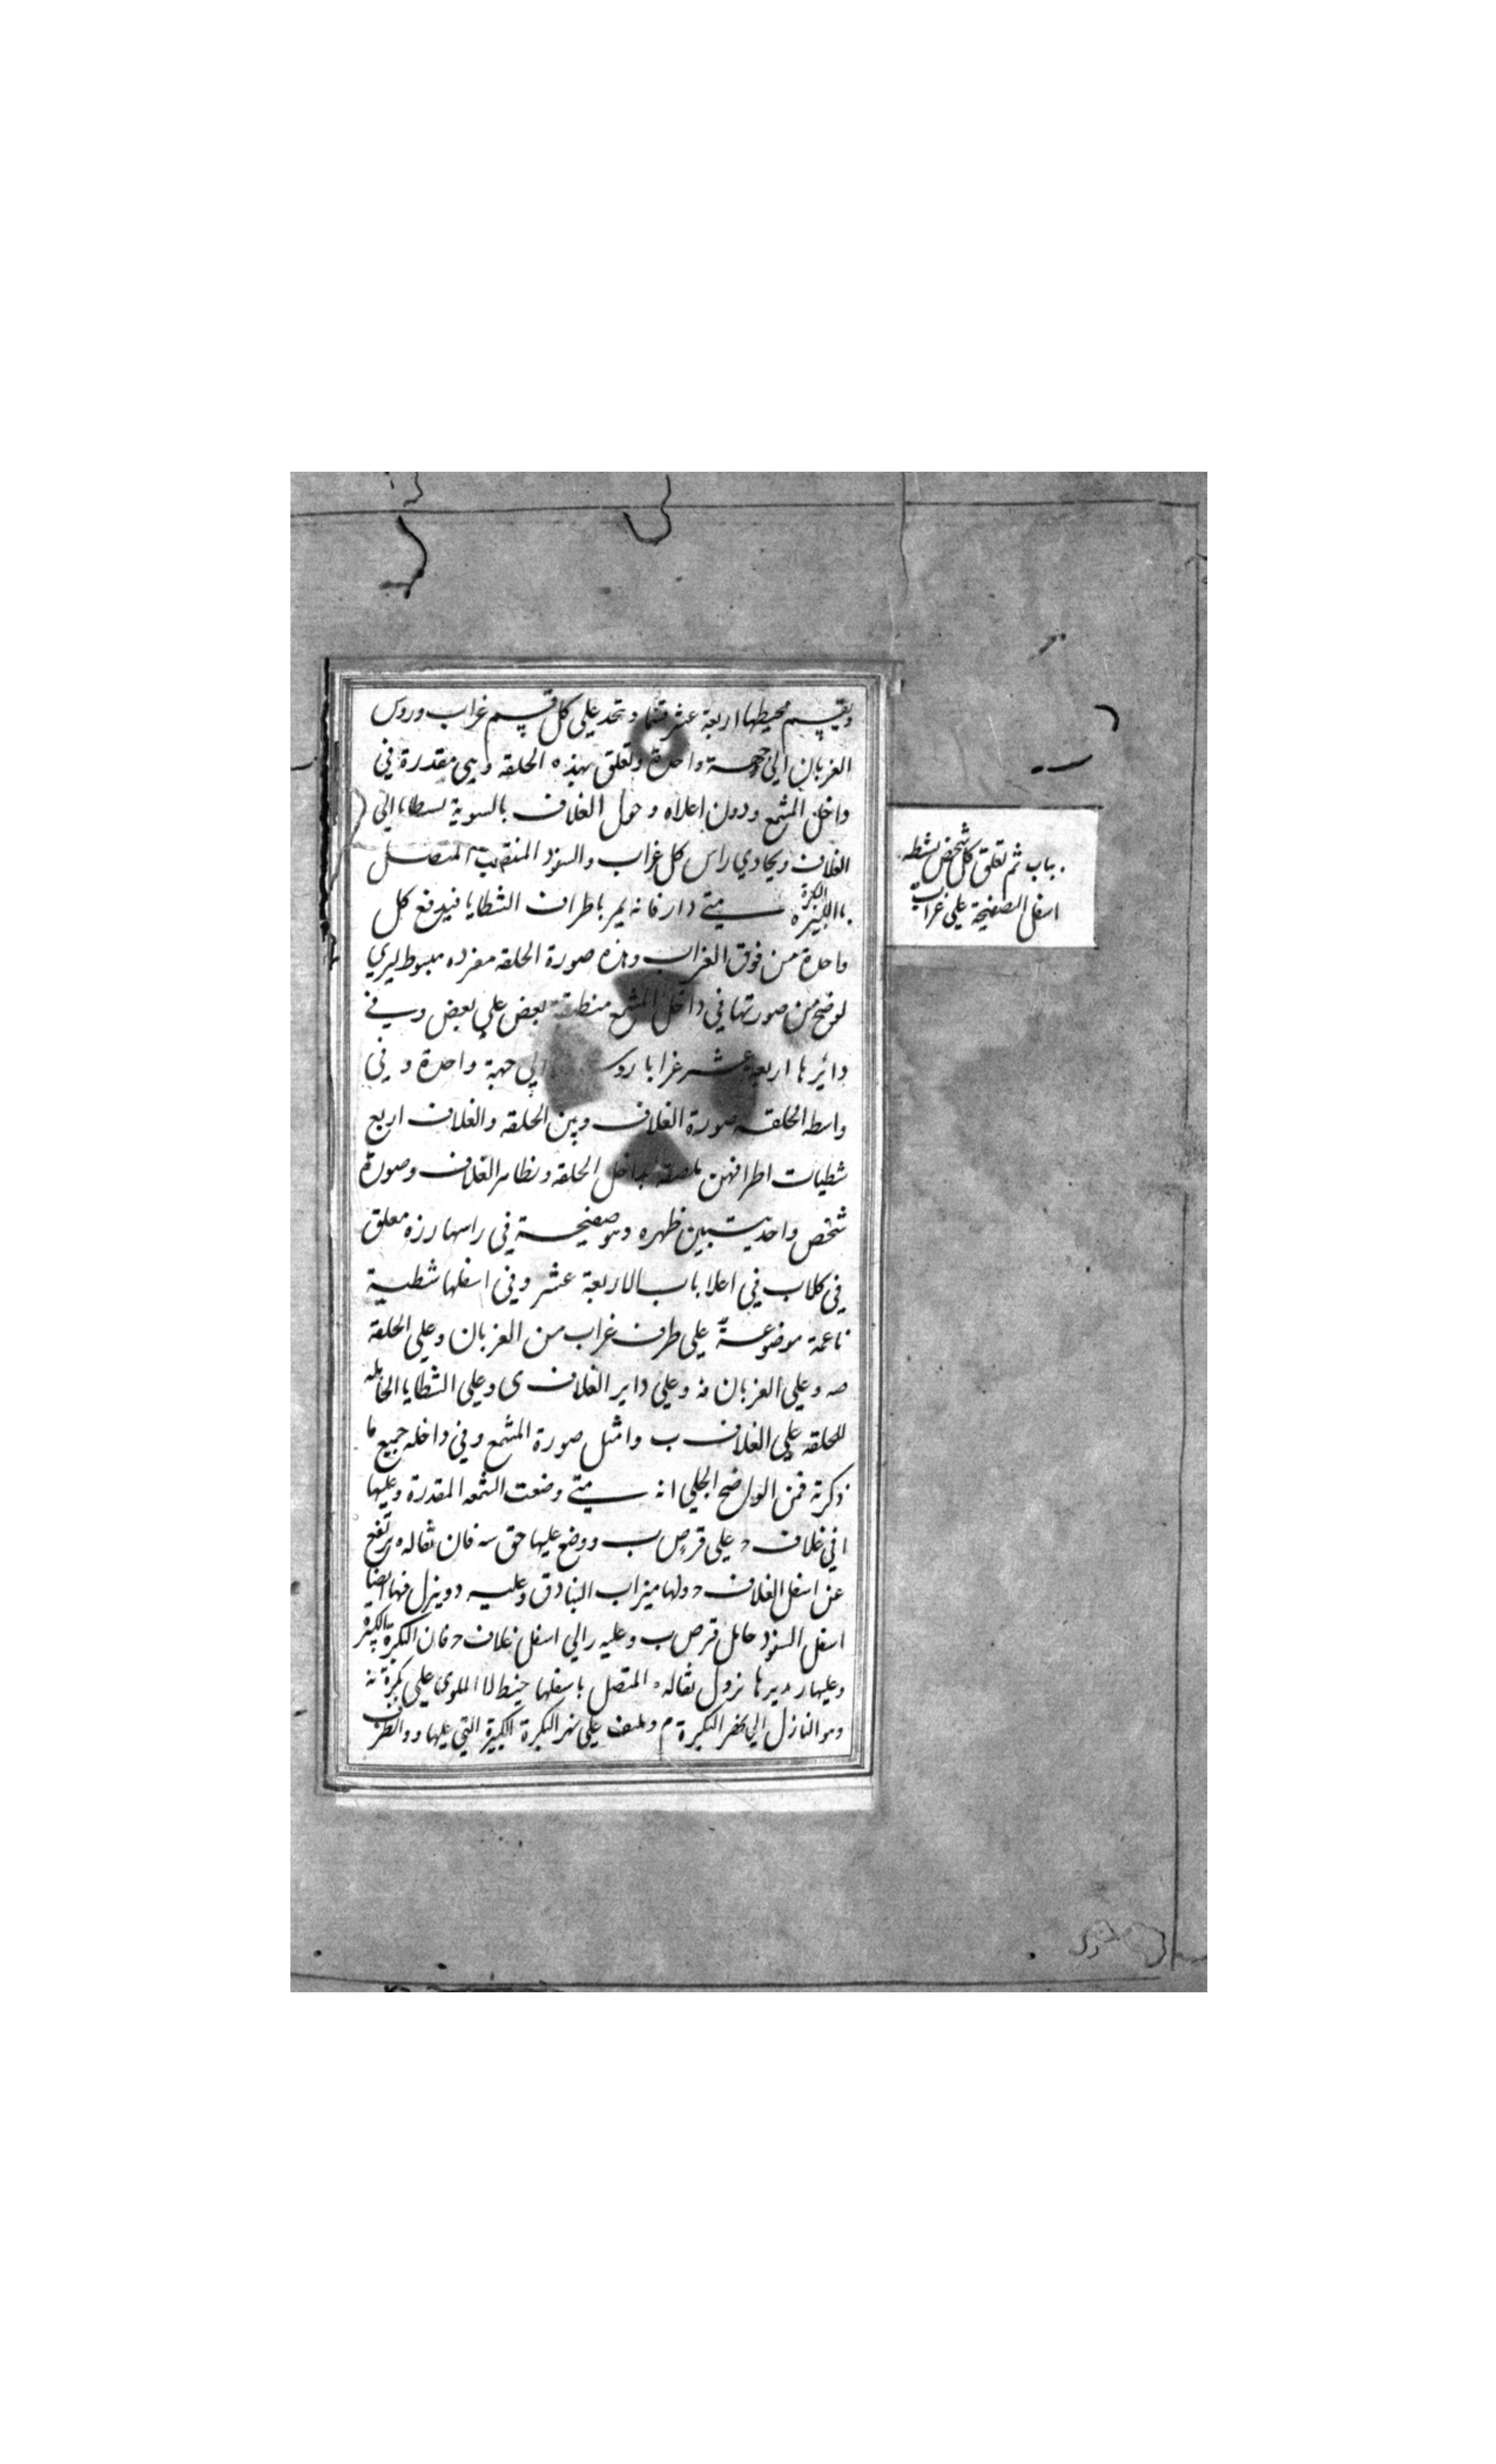 ويقسم محيطها اربعة عشر قسما و تحد على كل قسم غراب وروس
الغربان الى جهة واحدة وتعلق بهذه الحلقه وهى مقدرة فى
داخل المشمع ودون اعلاه و حول الغلاف بالسوية الى
الغلاف ويحادي راس كل غراب والسفود المنتصب المتصل
بالبكرة الكبيرة متى دار فانه يمر باطراف الشظايا فيدفع كل
واحدة من فوق الغراب وهذه صورة الحلقه مفرده مبسوط ليري
لوضح من صورتها في داخل المشمع منطبقة بعض علي بعض وسى في
دائرها اربعة عشر غرابا روس الى جهة واحدة و فى
واسطه الحلقه صورة الغلاف وبين الحلقه والغلاف اربع
شظيات اطرافهن ملصقة بداخل الحلقه وبظاهر الغلاف وصورة
شخص واحد يتبين ظهره وهو صفيحة في راسها رزه معلق
في كلاب في اعلا باب الاربعة عشر وفي اسفلها شظية
ناعمة موضوعة على طرف غراب من الغربان وعلى الحلقة
صه وعلى الغربان فه وعلى داير الغلاف ى وعلى الشظايا الحامله
للحلقه على الغلاف ب وامثل صورة المشمع وفي داخله جميع ما
ذكرته فمن الواضح الجلي انه متى وضعت الشمعه المقدرة وعليها
ا في غلاف ح على قرص ب ووضع عليها حق سه فان ثقاله ه ترتفع
عن اسفل الغلاف ح ولها ميزاب البنادق وعليه د وينزل فيها ايضا
اسفل السفود حامل قرص ب وعليه ر الي اسفل غلاف ح فان البكرة الكبيرة
وعليها ر يديرها نزول ثقاله ه المتصل باسفلها خيط لا الملوى على بكرة نه
وهو النازل الى نهر البكرة م وملتف على نهر البكرة الكبيرة التي عليها و والطرف
باب ثم تعلق كل شخص بشظه
اسفل الصفيحة على غراب